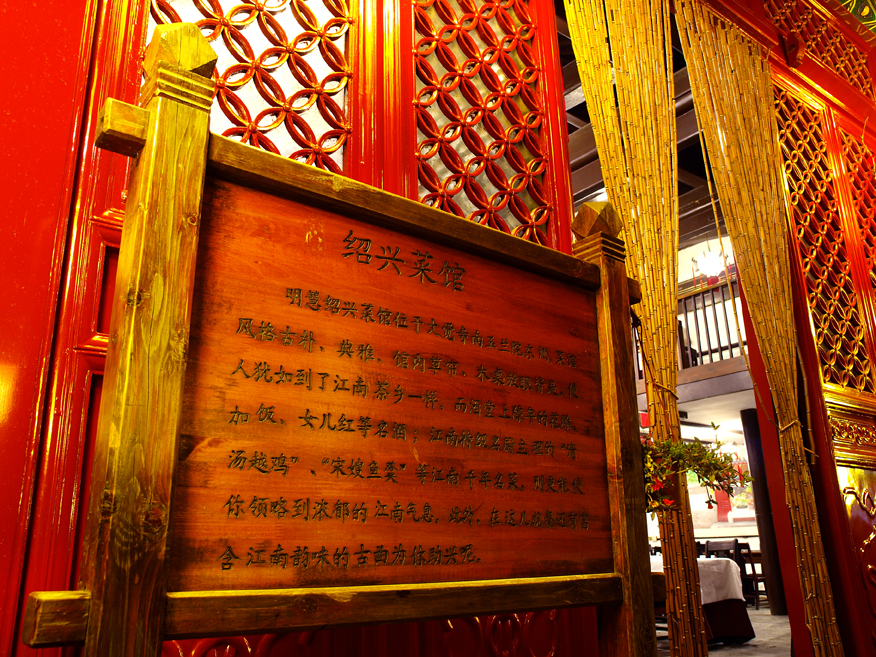 绍兴菜馆
明慧绍兴菜馆位于大觉寺南玉兰院东侧,
风格古朴、典雅,馆内草帘、木桌
人犹如到了江南茶乡一样,而酒堂上
加饭,女儿红等名酒;江南特级名厨主理的“清
汤越鸡”、“宋嫂鱼羹”等江南千年名菜,则更能使
你领略到浓郁的江南气息,此外,在这儿就餐还有富
含江南韵味的古曲为你助兴呢。